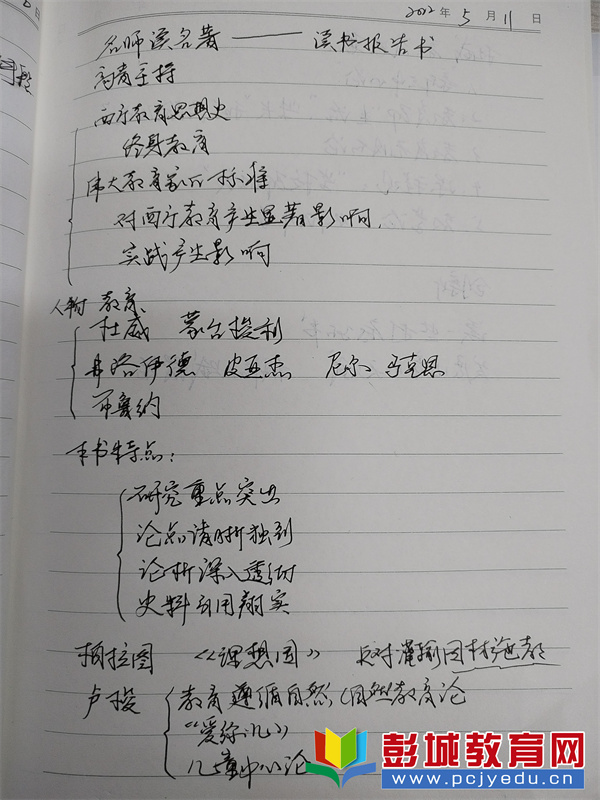 2022 年 5 月 11 日
名师读名著 —— 读书报告书
高青主持
西方教育思想史
终身教育
伟大教育家的标准
对西方教育产生显著影响
实践产生影响
教育
杜威 蒙台梭利
弗洛伊德 皮亚杰 尼尔 马克思
布鲁纳
本书特点：
研究重点突出
论点清晰独到
论析深入透彻
史料引用翔实
柏拉图 《理想国》 反对灌输因材施教
卢梭 教育遵循自然（自然教育论
《爱弥儿》
儿童中心论
彭城教育网
www.pcjyedu.cn